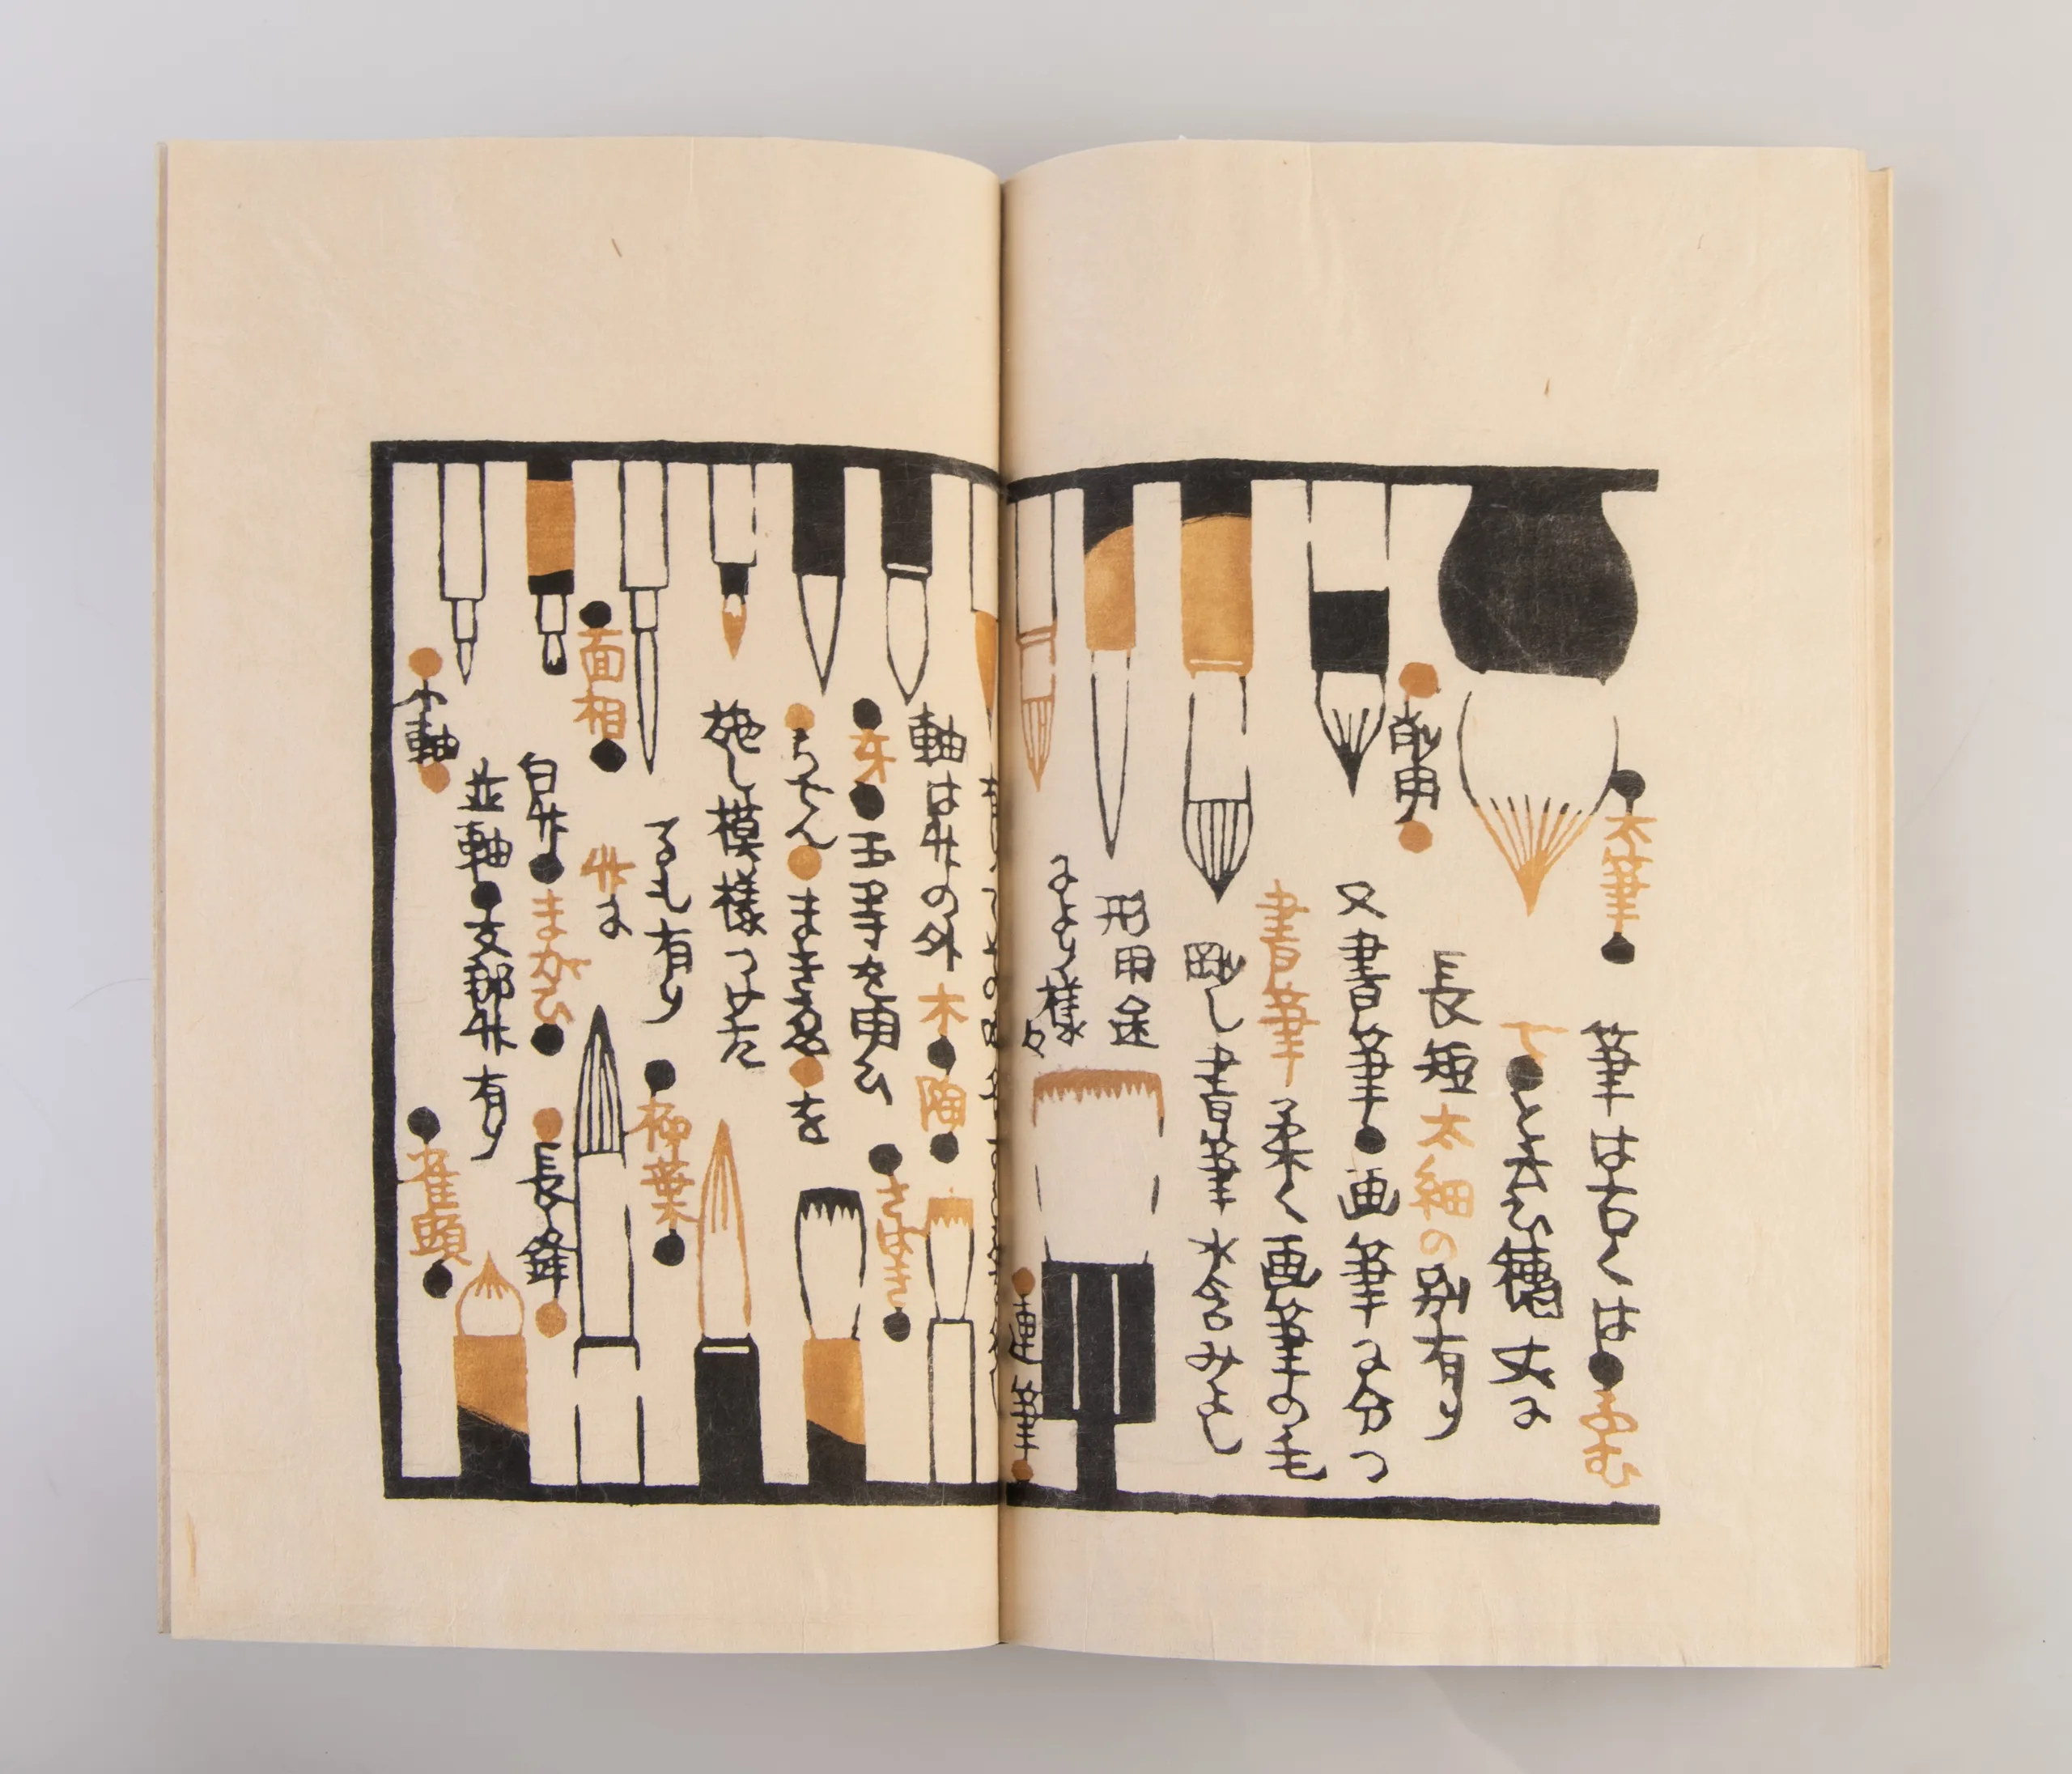 太筆
筆は古くは ふむ
て と云ひ 穂丈に
長短太細の別有り
削用
又書筆 画筆に分つ
書筆 柔く画筆の毛
剛し書筆 水含みよし
形用途
によ 様々
連筆
軸は竹の外 木 陶
きはき
牙 玉等を用ひ
らでん まき絵 を
施し模様つけた
るも有り
柳葉
面相
竹に
白竹 まがひ
長鋒
並軸 支那竹有り
小軸
雀頭